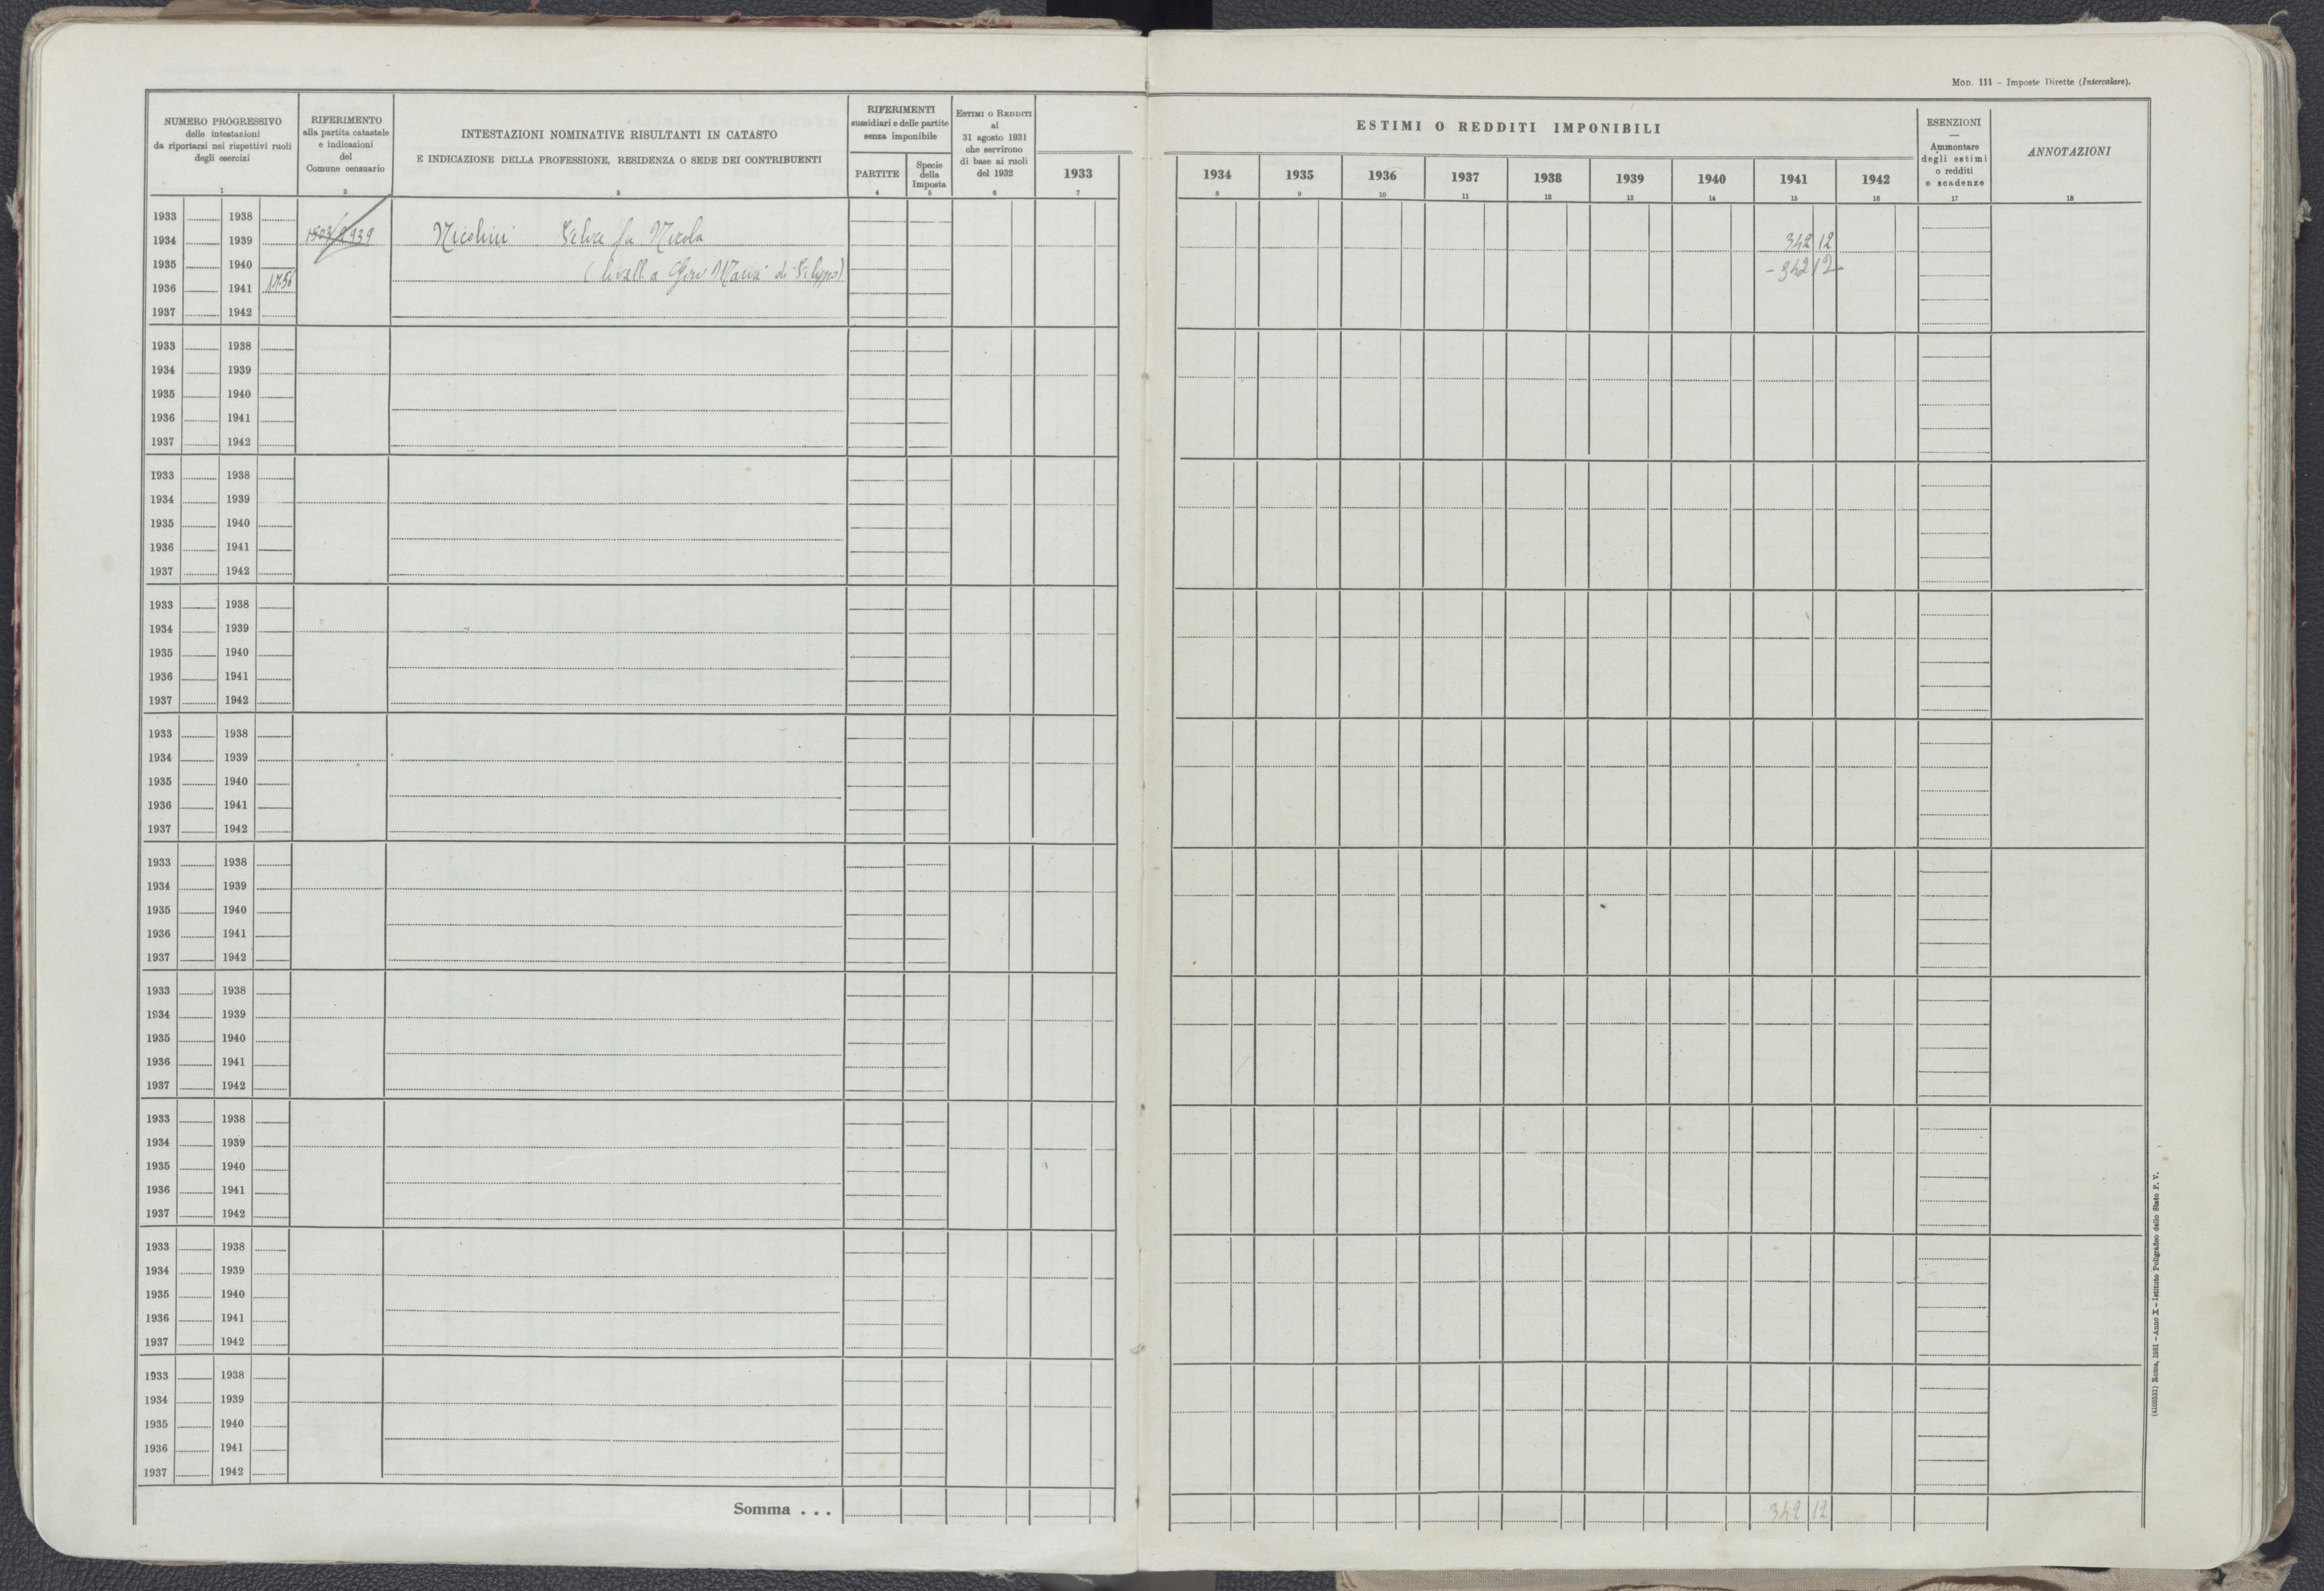 Mod. 111 – Imposte Dirette (Intercalare).
NUMERO PROGRESSIVO
delle intestazioni
da riportarsi nei rispettivi ruoli
degli esercizi
1
RIFERIMENTO
alla partita catastale
e indicazioni
del
Comune censuario
2
INTESTAZIONI NOMINATIVE RISULTANTI IN CATASTO
E INDICAZIONE DELLA PROFESSIONE, RESIDENZA O SEDE DEI CONTRIBUENTI
3
RIFERIMENTI
sussidiari e delle partite
senza imponibile
PARTITE
4
Specie
della
Imposta
5
Estimi o Redditi
al
31 agosto 1931
che servirono
di base ai ruoli
del 1932
6
1933
7
ESTIMI O REDDITI IMPONIBILI
1934 1935 1936 1937 1938 1939 1940 1941 1942
8 9 10 11 12 13 14 15 16
ESENZIONI
—
Ammontare
degli estimi
o redditi
e scadenze
17
ANNOTAZIONI
18
1933 1938
1934 1939 Nicolini Felice fu Nicola 342 12
1935 1940 (livell a Gio Maria di Filippo) - 342 12
1936 1941 1756
1937 1942
1933 1938
1934 1939
1935 1940
1936 1941
1937 1942
1933 1938
1934 1939
1935 1940
1936 1941
1937 1942
1933 1938
1934 1939
1935 1940
1936 1941
1937 1942
1933 1938
1934 1939
1935 1940
1936 1941
1937 1942
1933 1938
1934 1939
1935 1940
1936 1941
1937 1942
1933 1938
1934 1939
1935 1940
1936 1941
1937 1942
1933 1938
1934 1939
1935 1940
1936 1941
1937 1942
1933 1938
1934 1939
1935 1940
1936 1941
1937 1942
1933 1938
1934 1939
1935 1940
1936 1941
1937 1942
Somma . . . 342 12
(4103531) Roma, 1931 – Anno X – Istituto Poligrafico dello Stato P. V.